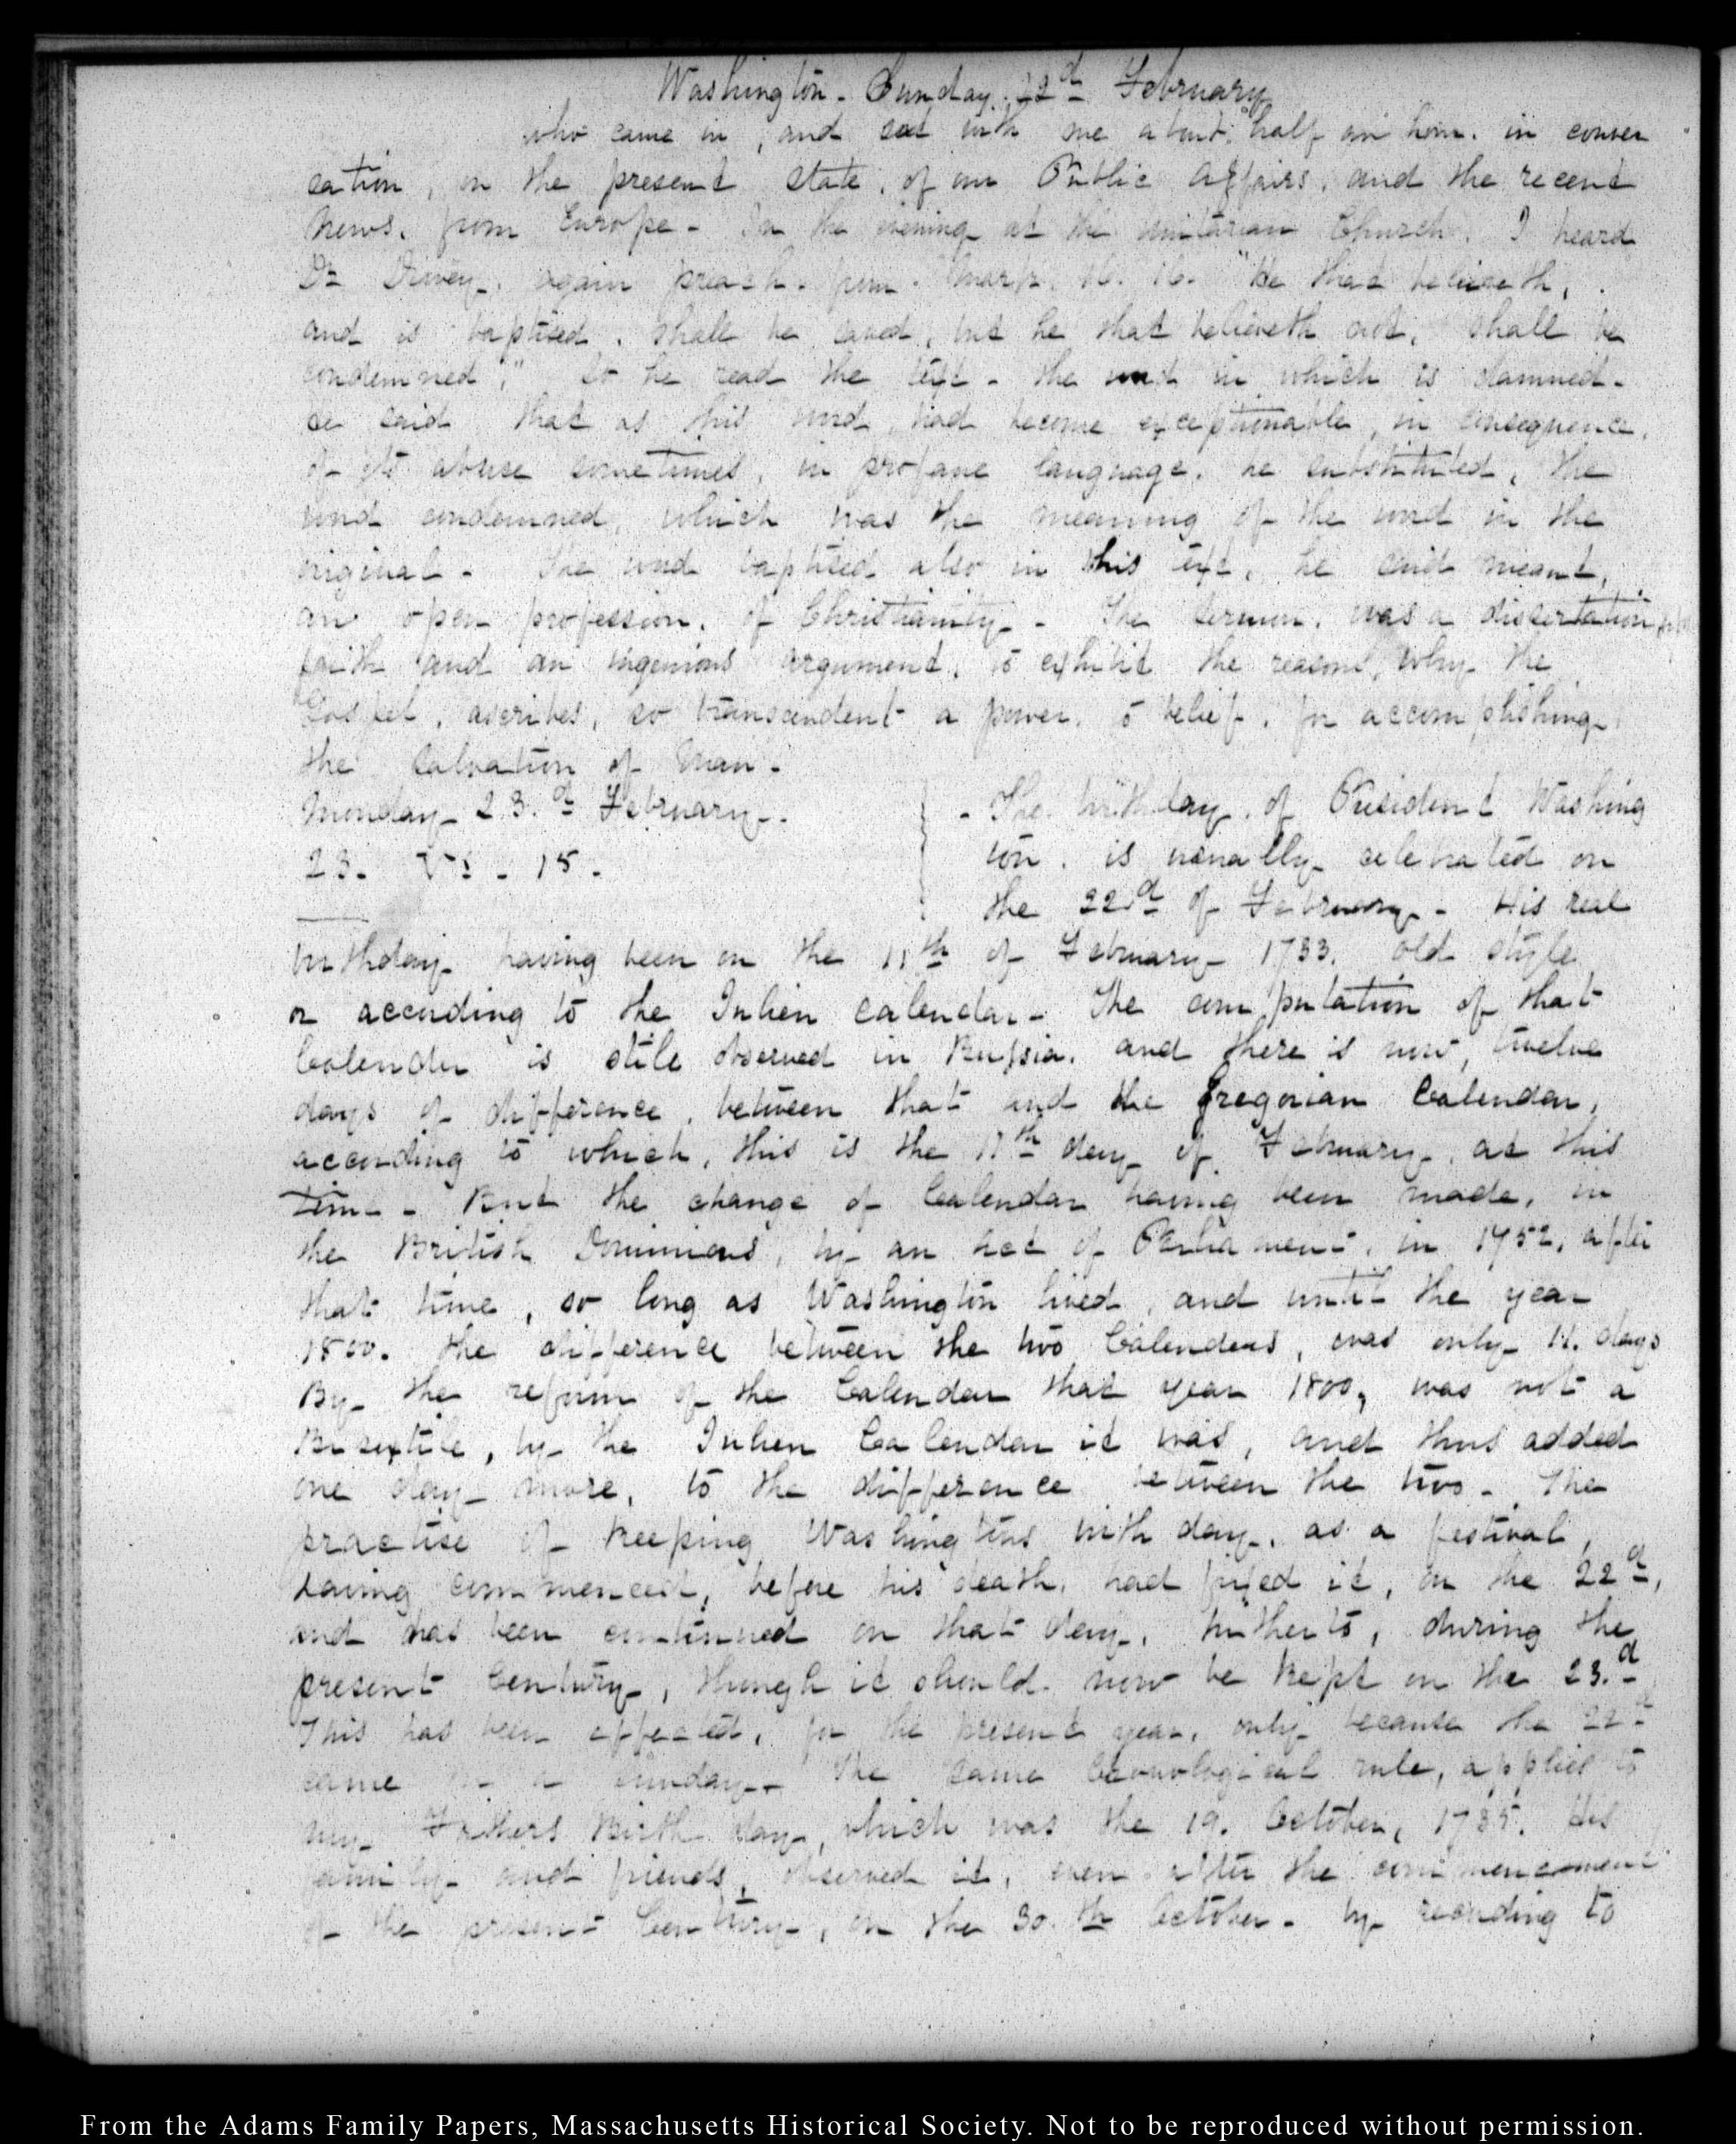 Washington. Sunday 22d February
who came in, and sat with me about half an hour in conver
sation, on the present state of our Public Affairs, and the recent
News from Europe - In the evening at the Unitarian Church. I heard
Dr Dewey again preach from Mark 16. 16. "He that believeth,
and is baptised, shall be saved, but he that believeth not, shall be
condemned;" So he read the text - the word in which is damned.
He said that as this word had become exceptionable, in consequence
of its abuse sometimes, in profane language, he substituted, the
word condemned, which was the meaning of the word in the
original - The word baptised also in this text, he said meant,
an open profession, of Christianity - The sermon, was a dissertation
faith and an ingenious argument, to exhibit the reasons, why the
Gospel, ascribes, so transcendent a power, to belief, for accomplishing
the Salvation of Man -
Monday 23.d February.
23. - 15.
- The birthday, of President Washing
ton, is usually celebrated on
the 22d of February - His real
birthday having been on the 11th of February 1733. old style
or according to the Julien calendar - The computation of that
Calendar is stile observed in Russia, and there is now, twelve
days of difference, between that and the Gregorian Calendar,
according to which, this is the 11th day of February, at this
time - But the change of Calendar having been made, in
the British Dominions, by an Act of Parliament, in 1752, after
that time, so long as Washington lived, and until the year
1800. the difference between the two Calendars, was only 11. days
By the reform of the Calendar that year 1800, was not a
Bisextile, by the Julien Calendar it was, and thus added
one day more, to the difference between the two - The
practise of keeping Washingtons birth day, as a festival,
having commenced, before his death, had fixed it, on the 22d,
and has been continued on that day, hitherto, during the
present Century, though it should now be kept on the 23.d
This has been effected, for the present year, only because the 22d
came on a Sunday - The same Chronological rule, applies to
my Fathers Birth day, which was the 19. October, 1735. His
family and friends, observed it, even after the commencement
of the present Century, on the 30.th October - by according to
From the Adams Family Papers, Massachusetts Historical Society. Not to be reproduced without permission.